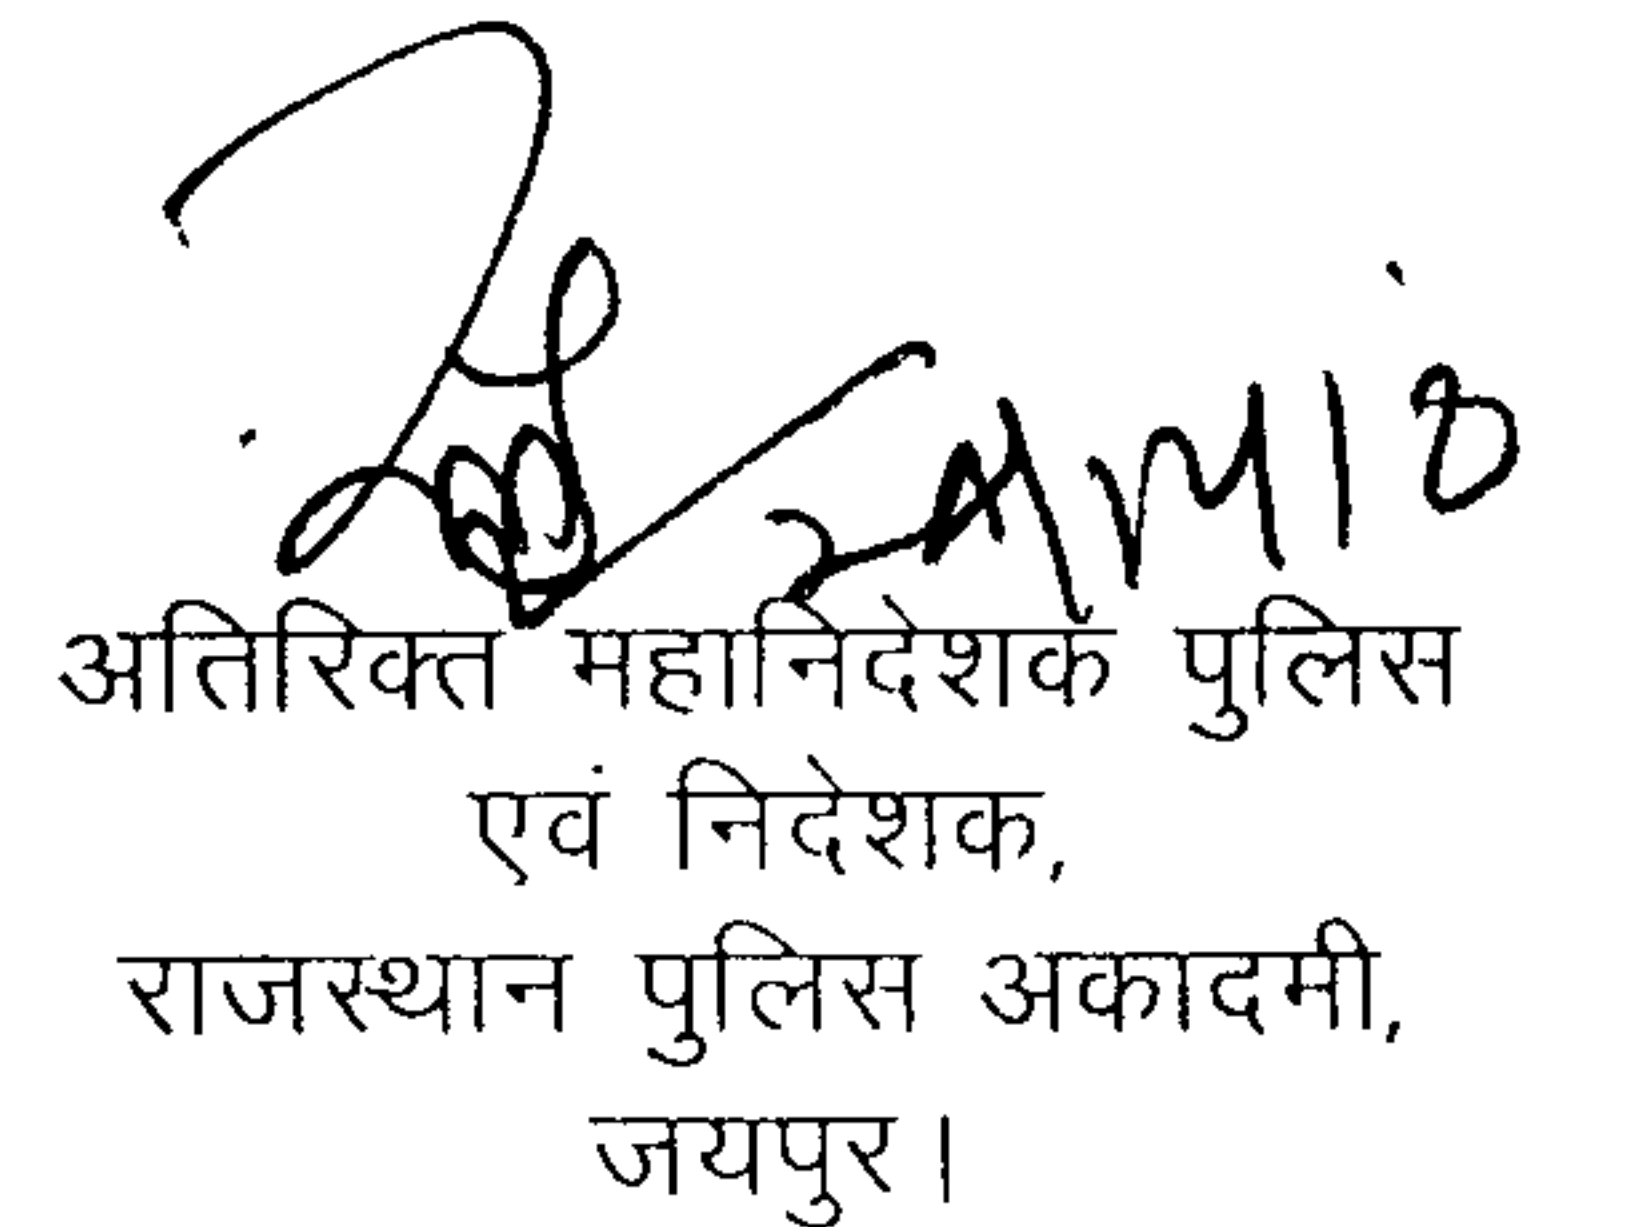 अतिरिक्त महानिदेशक पुलिस
एवं निदेशक,
राजस्थान पुलिस अकादमी,
जयपुर।